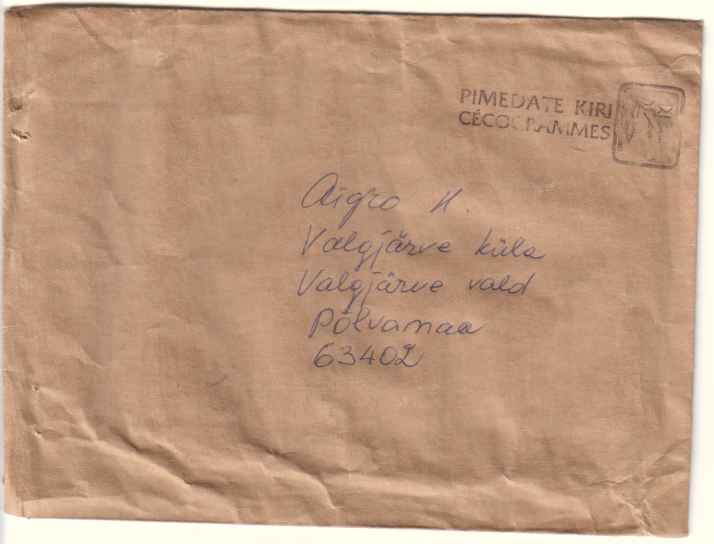 PIMEDATE KIRI
CÉCOGRAMMES
Aigro H.
Valgjärve küla
Valgjärve vald
Põlvamaa
63402